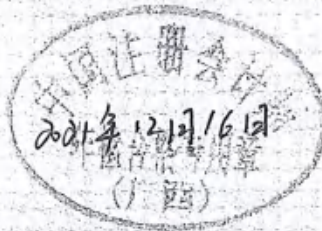 中国注册会计
2021年12月16日
专用章
(广西)